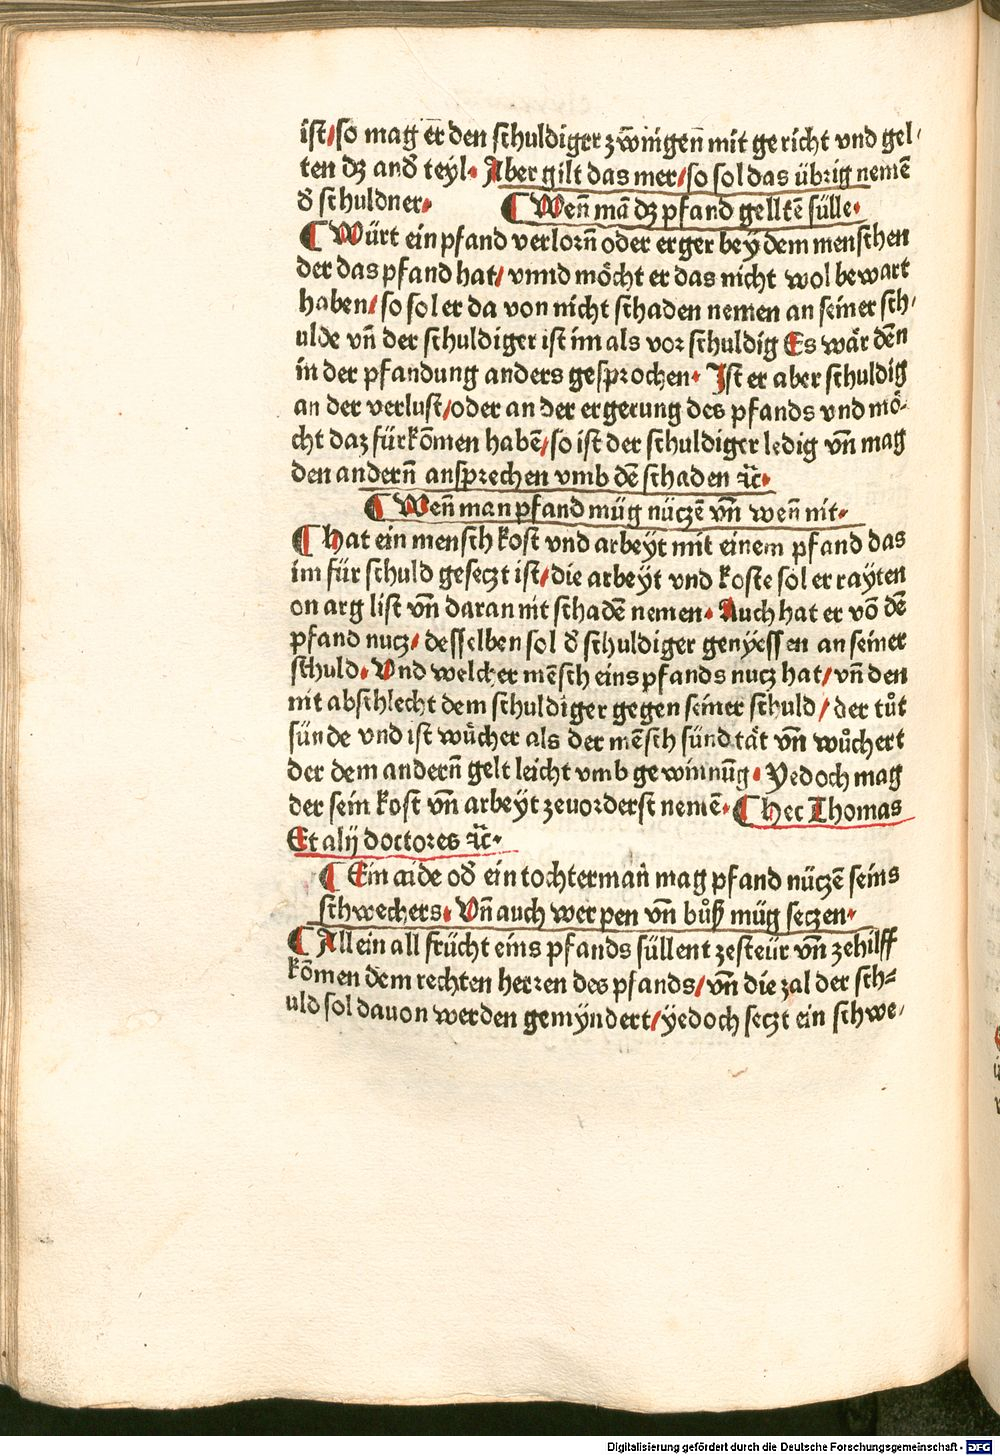 ist/so mag er̄ den schuldiger zw̄ingen̄ mit gericht vnd gel⸗
ten dz and̄ teyl. Aber gilt das mer/so sol das übrig nemē
d̄ schuldner. ¶ Wen̄ mā dz pfand gelltē sülle.
¶ Würt ein pfand verlorn̄ oder erger bey dem menschen
der das pfand hat/ vnnd möcht er das nicht wol bewart
haben/ so sol er da von nicht schaden nemen an seiner sch⸗
ulde vn̄ der schuldiger ist im als vor schuldig Es wär dēn
in der pfandung anders gesprochen. Ist er aber schuldig
an der verlust/oder an der ergerung des pfands vnd mö⸗
cht daz fürkōmen habē/so ist der schuldiger ledig vn̄ mag
den andern̄ ansprechen vmb dē schaden ꝛc̄.
¶ Wen̄ man pfand müg nüczē vn̄ wen̄ nit.
¶ Hat ein mensch kost vnd arbeyt mit einem pfand das
im für schuld geseczt ist/die arbeyt vnd koste sol er rayten
on arg list vn̄ daran nit schadē nemen. Auch hat er vō dē
pfand nucz/ desselben sol d̄ schuldiger genyessen an seiner
schuld. Vnd welcher mēsch eins pfands nucz hat/ vn̄ den
nit abschlecht dem schuldiger gegen seiner schuld/ der tůt
sünde vnd ist wůcher als der mēsch sünd tät vn̄ wůchert
der dem andern̄ gelt leicht vmb gewinnūg. Yedoch mag
der sein kost vn̄ arbeyt zeuorderst nemē. ¶ hec Thomas
Et alij doctores ꝛc̄.
¶ Ein aide od̄ ein tochterman̄ mag pfand nüczē seins
schwechers. Vn̄ auch wer pen vn̄ bůß müg seczen.
¶ Allein all frücht eins pfands süllent zesteür vn̄ zehilff
kōmen dem rechten herren des pfands/ vn̄ die zal der sch⸗
uld sol dauon werden gemyndert/ yedoch seczt ein schwe⸗
Digitalisierung gefördert durch die Deutsche Forschungsgemeinschaft - DFG